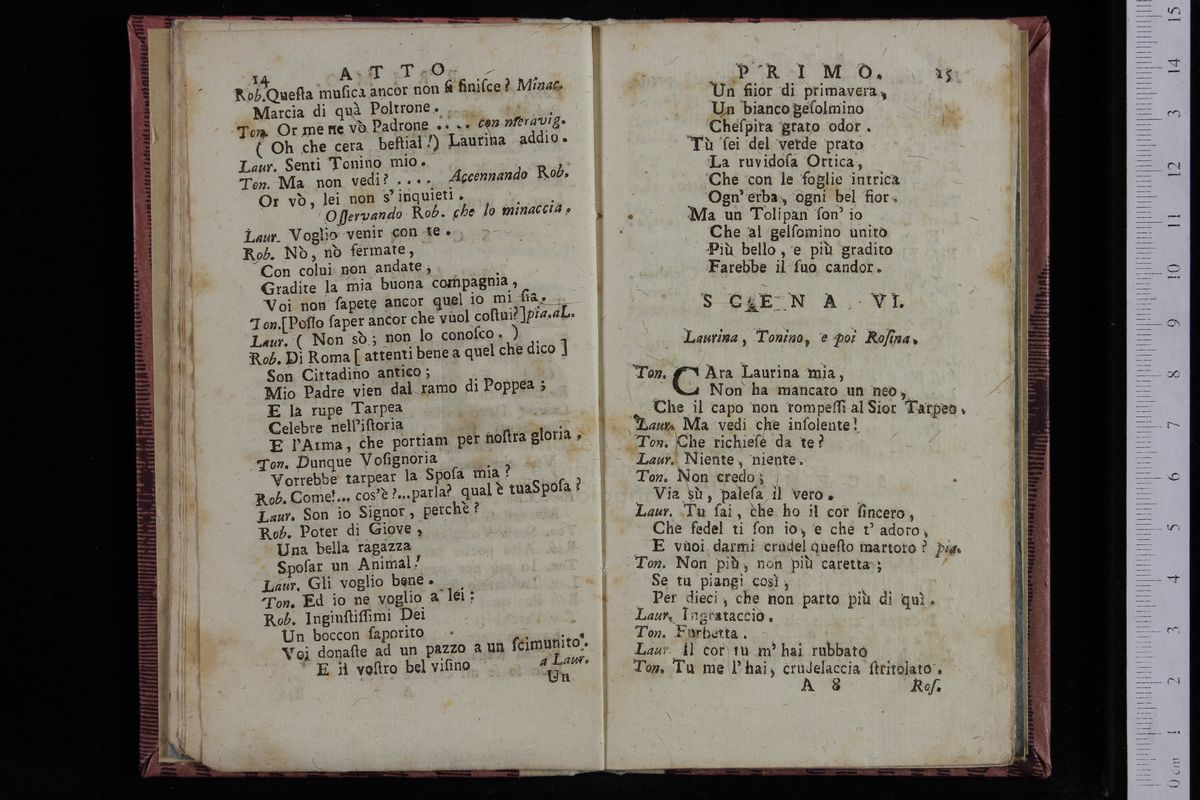 14 ATTO
Rob. Queſta muſica ancor non ſi finiſce? Minac.
Marcia di quà Poltrone.
Ton. Or me ne vò Padrone .... con meravig.
( Oh che cera beſtial!) Laurina addio.
Laur. Senti Tonino mio.
Ton. Ma non vedi? .... Accennando Rob.
Or vò, lei non s'inquieti.
Oſſervando Rob. che lo minaccia.
Laur. Voglio venir con te.
Rob. Nò, nò fermate,
Con colui non andate,
Gradite la mia buona compagnia,
Voi non ſapete ancor quel io mi ſia.
Ton. [Poſſo ſaper ancor che vuol coſtui?] pia. a L.
Laur. ( Non sò; non lo conoſco. )
Rob. Di Roma [ attenti bene a quel che dico ]
Son Cittadino antico;
Mio Padre vien dal ramo di Poppea;
E la rupe Tarpea
Celebre nell'iſtoria
E l'Arma, che portiam per noſtra gloria,
Ton. Dunque Voſignoria
Vorrebbe tarpear la Spoſa mia?
Rob. Come!... cos'è?...parla? qual è tua Spoſa?
Laur. Son io Signor, perchè?
Rob. Poter di Giove,
Una bella ragazza
Spoſar un Animal!
Laur. Gli voglio bene.
Ton. Ed io ne voglio a lei:
Rob. Ingiuſtiſſimi Dei
Un boccon ſaporito
Voi donaſte ad un pazzo a un ſcimunito.
E il voſtro bel viſino a Laur.
Un
PRIMO. 15
Un fiior di primavera,
Un bianco geſolmino
Cheſpira grato odor.
Tù ſei del verde prato
La ruvidoſa Ortica,
Che con le foglie intrica
Ogn'erba, ogni bel fior.
Ma un Tolipan ſon' io
Che al gelſomino unito
Più bello, e più gradito
Farebbe il ſuo candor.
SCENA VI.
Laurina, Tonino, e poi Roſina.
Ton. CAra Laurina mia,
Non ha mancato un neo,
Che il capo non rompeſſi al Sior Tarpeo.
Laur. Ma vedi che inſolente!
Ton. Che richieſe da te?
Laur. Niente, niente.
Ton. Non credo;
Via sù, paleſa il vero.
Laur. Tu ſai, che ho il cor ſincero,
Che fedel ti ſon io, e che t' adoro,
E vuoi darmi crudel queſto martoro? pia.
Ton. Non più, non più caretta;
Se tu piangi così,
Per dieci, che non parto più di quì.
Laur. Ingrataccio.
Ton. Furbetta.
Laur. Il cor tu m' hai rubbato
Ton. Tu me l'hai, crudelaccia ſtritolato.
A 8 Roſ.
0 cm 1 2 3 4 5 6 7 8 9 10 11 12 13 14 15